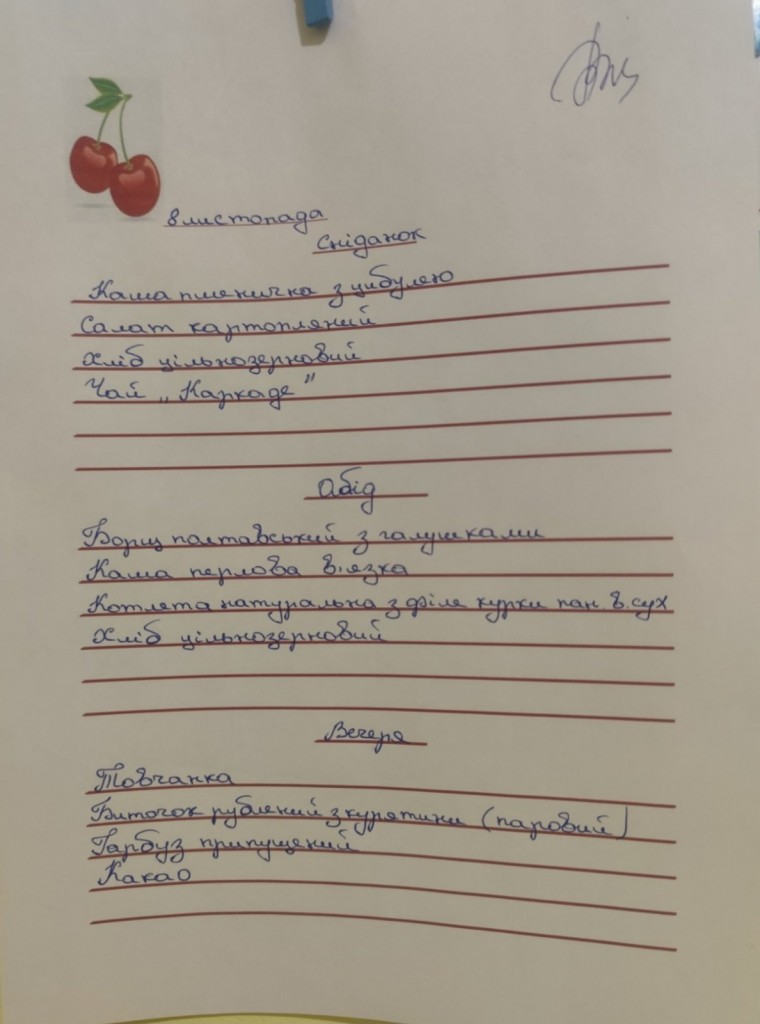 8 листопада
Сніданок
Каша пшенична з цибулею
Салат картопляний
Хліб цільнозерновий
Чай „Каркаде"
Обід
Борщ полтавський з галушками
Каша перлова в'язка
Котлета натуральна з філе курки пан. в. сух
Хліб цільнозерновий
Вечеря
Товчанка
Биточок рублений з курятини (паровий)
Гарбуз припущений
Какао